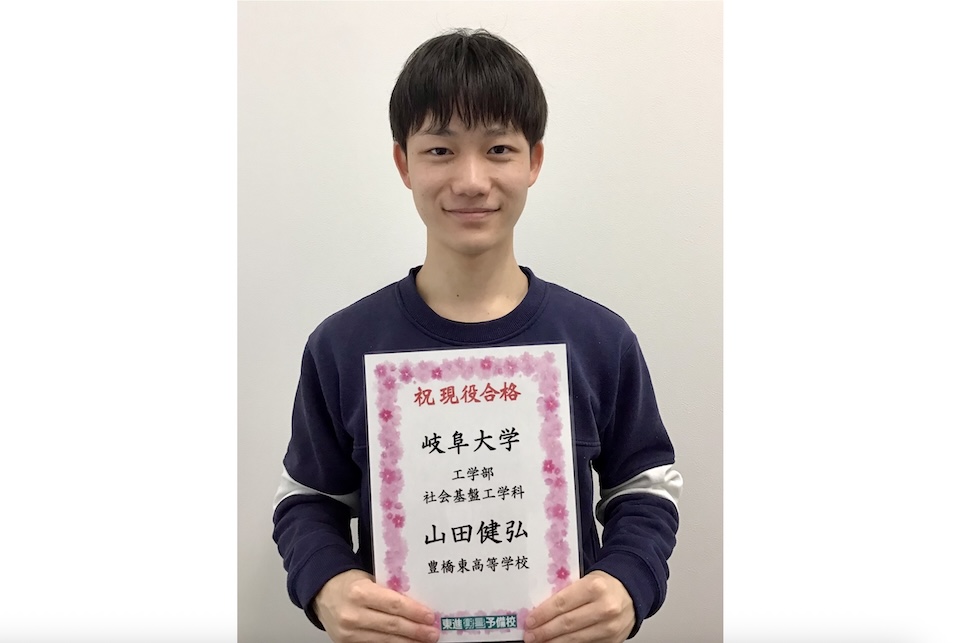 祝 現役合格
岐阜大学
工学部
社会基盤工学科
山田健弘
豊橋東高等学校
東進衛星予備校